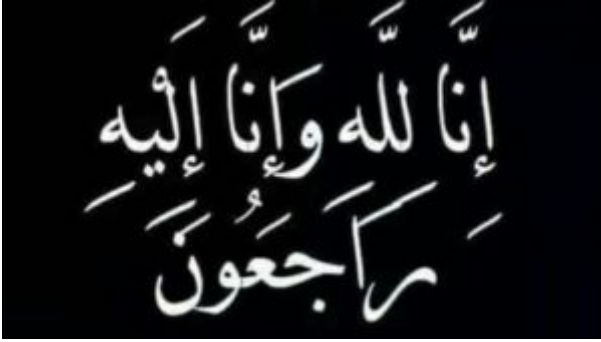 إنَّا للَّه وَإِنَّا إِلَيْهِ
رَاجَعُونَ